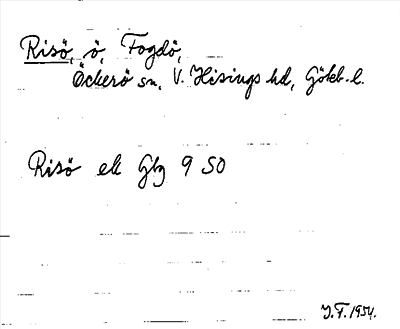 Risö, ö, Fogdö,
Öckerö sn, V. Hisings hd, Göteb. l.
Risö ek Gbg 9 SO
J.F. 1954.